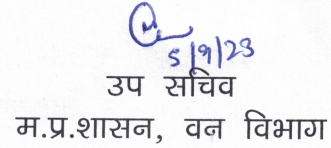 5/9/23
उप सचिव
म.प्र.शासन, वन विभाग